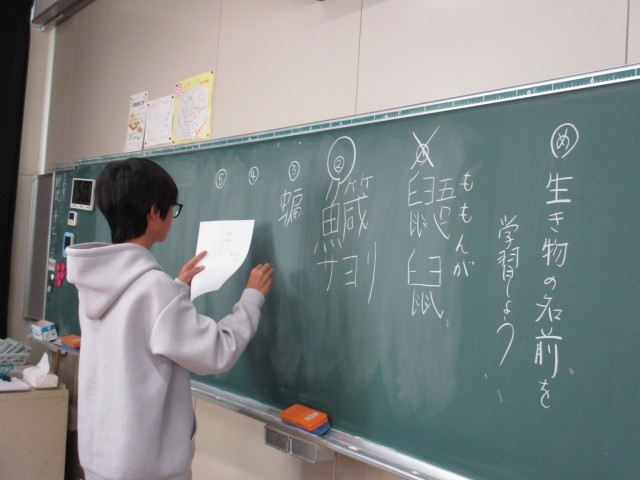 め 生き物の名前を
学習しよう。
ももんが
鼯鼠
② 鱵
サヨリ
③ 蝙
④
⑤